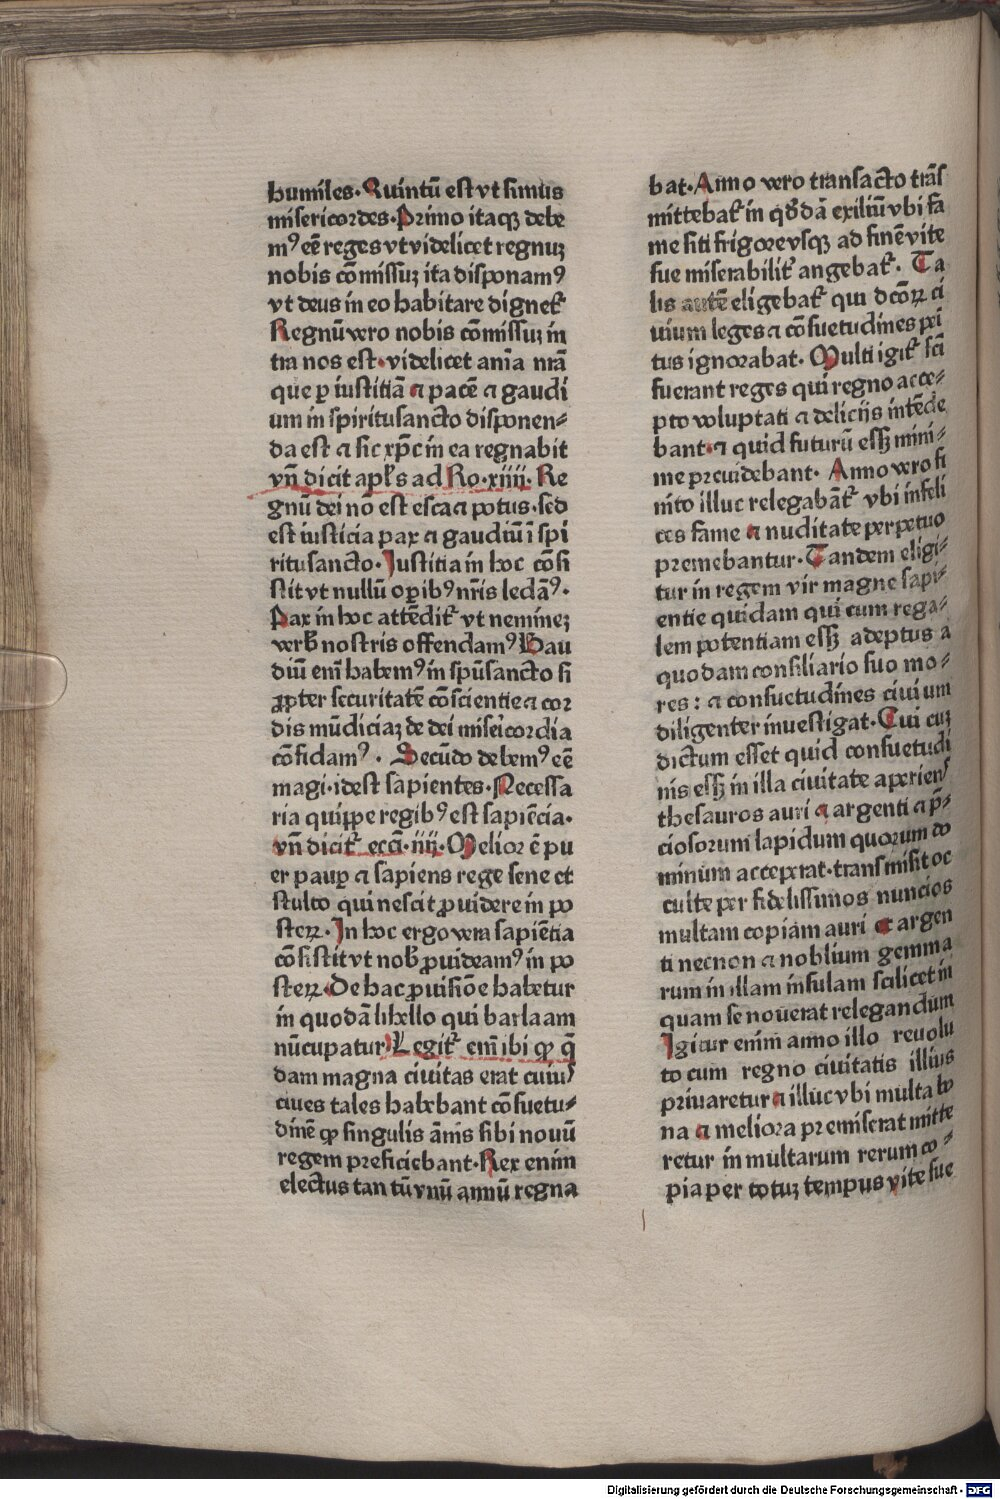 humiles. Quintū est vt simus
misericordes. Primo itaqꝫ debe
mꝰ eē reges vt videlicet regnuꝫ
nobis cōmissuꝫ ita disponamꝰ
vt deus in eo habitare dignet᷑
Regnū vero nobis cōmissuꝫ in
tra nos est. videlicet anīa nr̄a
que ꝑ iustitiā ⁊ pacē ⁊ gaudi
um in spiritusancto disponen⸗
da est ⁊ sic xp̄c in ea regnabit
vn̄ dicit apl̓s ad Ro. xiiij. Re
gnū dei nō est esca ⁊ potus. sed
est iusticia pax ⁊ gaudiū ī spi
ritusancto. Justitia in hoc cōsi
stit vt nullū oꝑibꝰ nr̄is ledāꝰ.
Pax in hoc attēdit᷑ vt nemineꝫ
verb̓ nostris offendamꝰ Gau
diū enī habemꝰ in spūsancto si
ꝓpter securitatē cōscientie ⁊ cor
dis mūdiciaꝫ de dei misericordia
cōfidamꝰ. Secūdo debemꝰ eē
magi. idest sapientes. Necessa
ria quippe regibꝰ est sapiēcia.
vn̄ dicit᷑ ecci̅. iiij. Melior ē pu
er pauꝑ ⁊ sapiens rege sene et
stulto qui nescit ꝓuidere in po
steꝝ. In hoc ergo vera sapiētia
cōsistit vt nob̓ ꝓuideamꝰ in po
steꝝ. De hac ꝓuisiōe habetur
in quodā libello qui barlaam
nūcupatur Legit᷑ enī ibi ꝙ q̄
dam magna ciuitas erat cuiuꝰ
ciues tales habebant cōsuetu⸗
dinē ꝙ singulis ānis sibi nouū
regem preficiebant. Rex enim
electus tantū vnū annū regna
bat. Anno vero transacto trās
mittebat᷑ in qd̓dā exiliū vbi fa
me siti frigore vsqꝫ ad finē vite
sue miserabilit᷑ angebat᷑. Ta
lis autē eligebat᷑ qui dcōꝝ ci
uium leges ⁊ cōsuetudines peī
tus ignorabat. Multi igit᷑ sc̄i
fuerant reges qui regno acce⸗
pto voluptati ⁊ deliciis intēde
bant. ⁊ quid futurū essꝫ mini⸗
me preuidebant. Anno vero fi
nito illuc relegabāt᷑ vbi infeli
ces fame ⁊ nuditate perpetuo
premebantur. Tandem eligi⸗
tur in regem vir magne sapi⸗
entie quidam qui cum rega⸗
lem potentiam essꝫ adeptus a
quodam consiliario suo mo⸗
res: ⁊ consuetudines ciuium
diligenter inuestigat. Cui cuꝫ
dictum esset quid consuetudi
nis essꝫ in illa ciuitate aperienꝰ
thesauros auri ⁊ argenti ⁊ p̄⸗
ciosorum lapidum quorum do
minum acceperat. transmisit oc
culte per fidelissimos nuncios
multam copiam auri et argen
ti necnon ⁊ noblium gemma
rum in illam insulam scilicet in
quam se nouerat relegandum
Igitur enim anno illo reuolu
to cum regno ciuitatis illius
priuaretur ⁊ illuc vbi multa bo
na ⁊ meliora premiserat mitte
retur in multarum rerum co⸗
pia per totuꝫ tempus vite sue
Digitalisierung gefördert durch die Deutsche Forschungsgemeinschaft - DFG